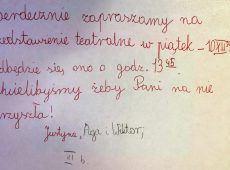 serdecznie zapraszamy na
zedstawienie teatralne w piątek - 10.XII
dbędzie się, ono o godz. 13 45.
hcielibyśmy żeby Pani na nie
rzyszła!
Justyna, Aga i Wiktor,
VI b.